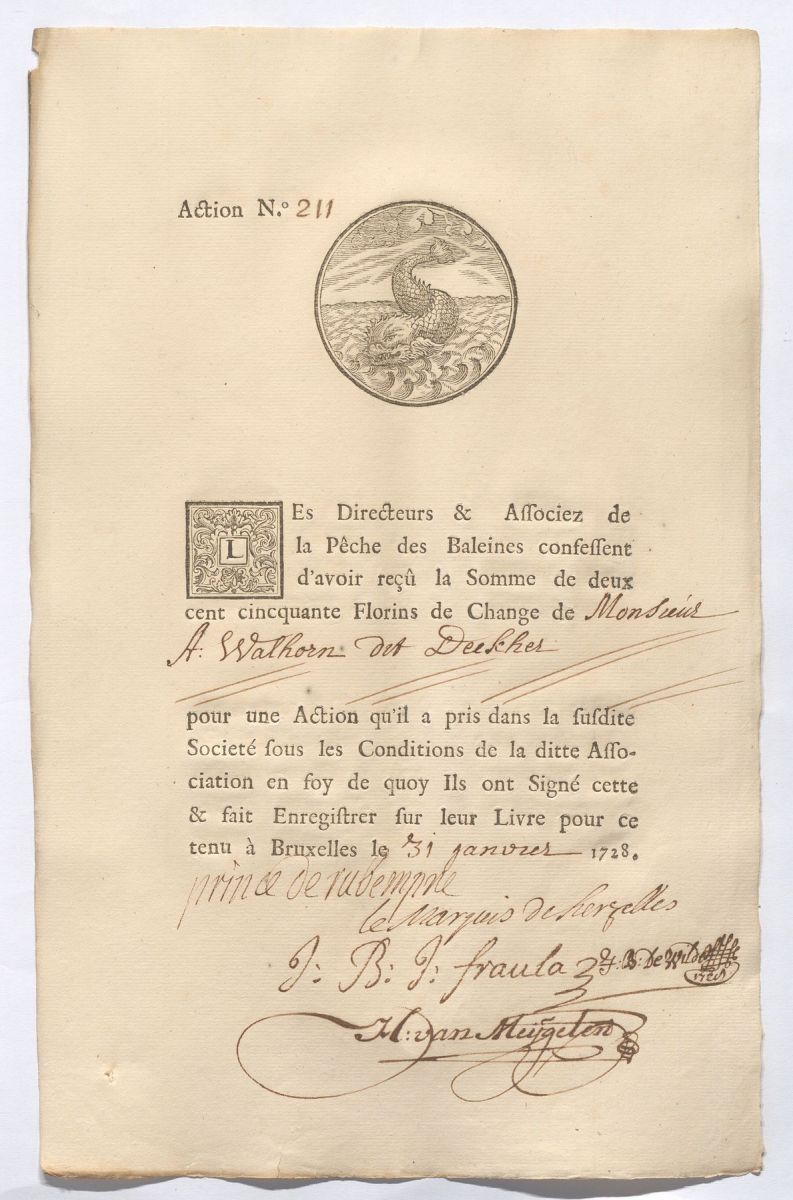 Action N.º 211
LEs Directeurs & Aſſociez de
la Pêche des Baleines confeſſent
d'avoir reçû la Somme de deux
cent cincquante Florins de Change de Monsieúr
A: Walhorn det Deckher
pour une Action qu'il a pris dans la ſuſdite
Societé ſous les Conditions de la ditte Aſſo-
ciation en foy de quoy Ils ont Signé cette
& fait Enregiſtrer ſur leur Livre pour ce
tenu à Bruxelles le 31 janvier 1728.
prince de rubempre
le Marquis de herzelles
J: B: J: fraula J: B: de Wilde
1728
H: van Meijgelen